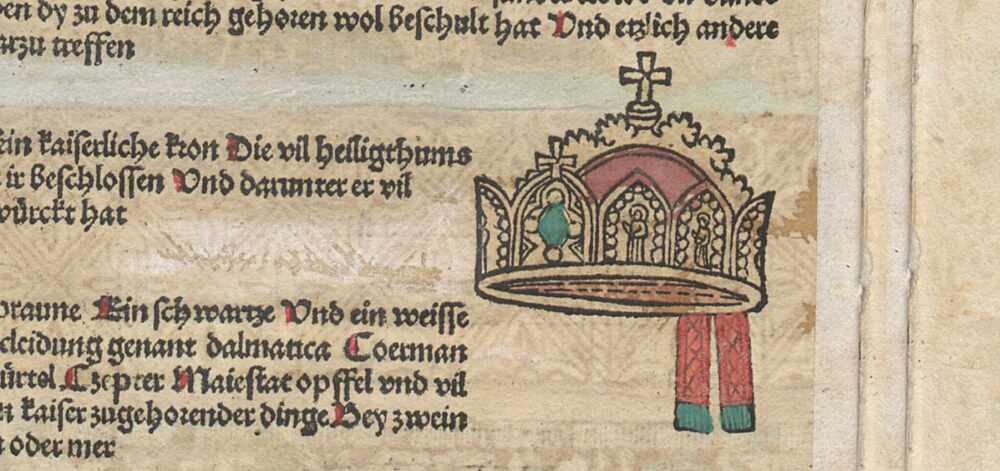 dy zu dem reich gehoren wol beschult hat Vnd etzlich andere
treffen
kaiserliche kron Die vil heiligthums
ir beschlossen Vnd darunter er vil
würckt hat
braune Ein schwartze Vnd ein weisse
cleidung genant dalmatica Coerman
gürtel Czepter Maiestat opffel vnd vil
kaiser zugehorender dinge Bey zwein
oder mer